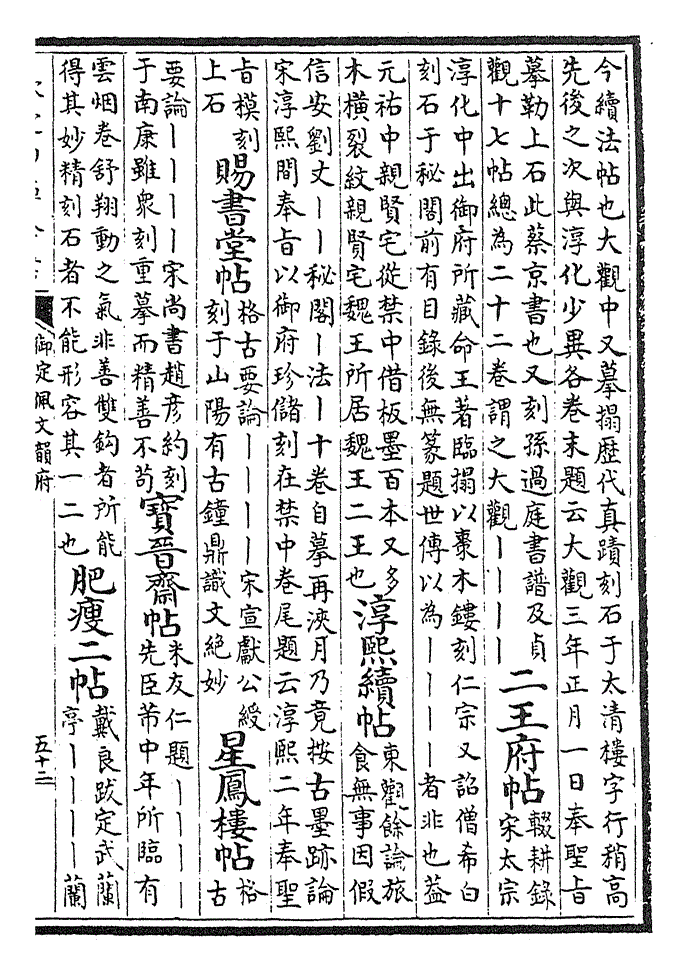 今續法帖也大觀中又摹搨歷代真蹟刻石于太清樓字行稍高
先後之次與淳化少異各卷末題云大觀三年正月一日奉聖旨
摹勒上石此蔡京書也又刻孫過庭書譜及貞
觀十七帖總為二十二卷謂之大觀丨丨丨丨
二王府帖
輟耕錄
宋太宗
淳化中出御府所藏命王著臨搨以棗木鏤刻仁宗又詔僧希白
刻石于秘閣前有目錄後無篆題世傳以為丨丨丨丨者非也葢
元祐中親賢宅從禁中借板墨百本又多
木橫裂紋親賢宅魏王所居魏王二王也
淳熙續帖
東觀餘論旅
食無事因假
信安劉丈丨丨秘閣丨法丨十卷自摹再浹月乃竟按古墨跡論
宋淳熙間奉旨以御府珍儲刻在禁中卷尾題云淳熙二年奉聖
旨模刻
上石
賜書堂帖
格古要論丨丨丨丨宋宣獻公綬
刻于山陽有古鐘鼎識文絕妙
星鳳樓帖
格
古
要論丨丨丨丨宋尚書趙彥約刻
于南康雖衆刻重摹而精善不苟
寶晉齋帖
米友仁題丨丨丨丨
先臣芾中年所臨有
雲烟卷舒翔動之氣非善雙鈎者所能
得其妙精刻石者不能形容其一二也
肥瘦二帖
戴良跋定武蘭
亭丨丨丨丨蘭
御定佩文韻府
五十三